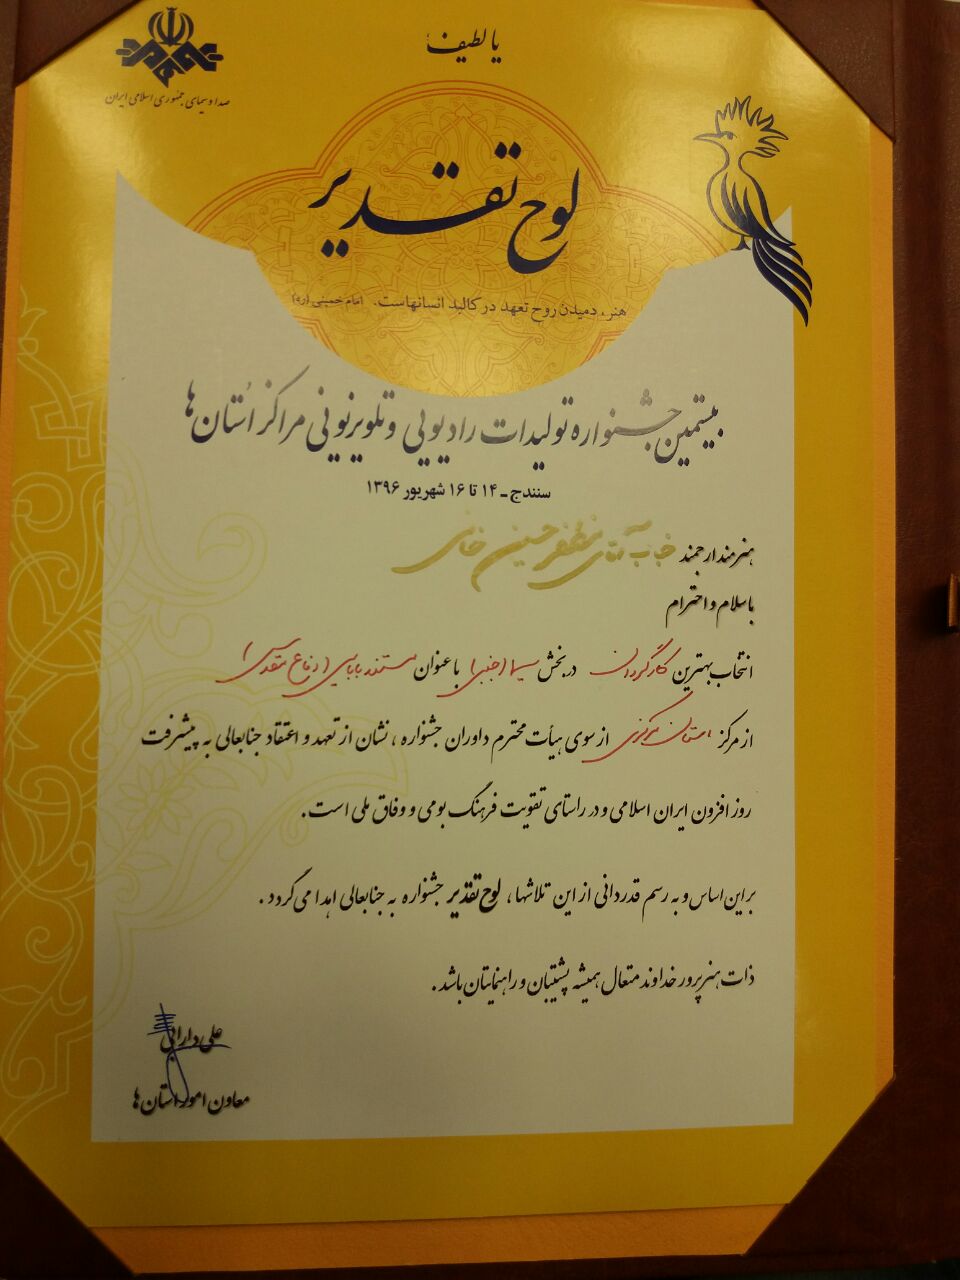 یا لطیف
صدا و سیمای جمهوری اسلامی ایران
لوح تقدیر
هنر، دمیدن روح تعهد در کالبد انسانهاست. امام خمینی (ره)
بیستمین جشنواره تولیدات رادیویی و تلویزیونی مراکز اُستان ها
سنندج ـ ۱۴ تا ۱۶ شهریور ۱۳۹۶
هنرمند ارجمند جناب آقای مظفر حسین خانی
با سلام و احترام
انتخاب بهترین کارگردان در بخش سیما (جنبی) با عنوان مستند بابایی (دفاع مقدس)
از مرکز استان مرکزی از سوی هیأت محترم داوران جشنواره ، نشان از تعهد و اعتقاد جنابعالی به پیشرفت
روز افزون ایران اسلامی و در راستای تقویت فرهنگ بومی و وفاق ملی است.
براین اساس و به رسم قدردانی از این تلاشها ، لوح تقدیر جشنواره به جنابعالی اهدا می گردد .
ذات هنرپرور خداوند متعال همیشه پشتیبان و راهنمایتان باشد.
علی دارابی
معاون امور استان ها